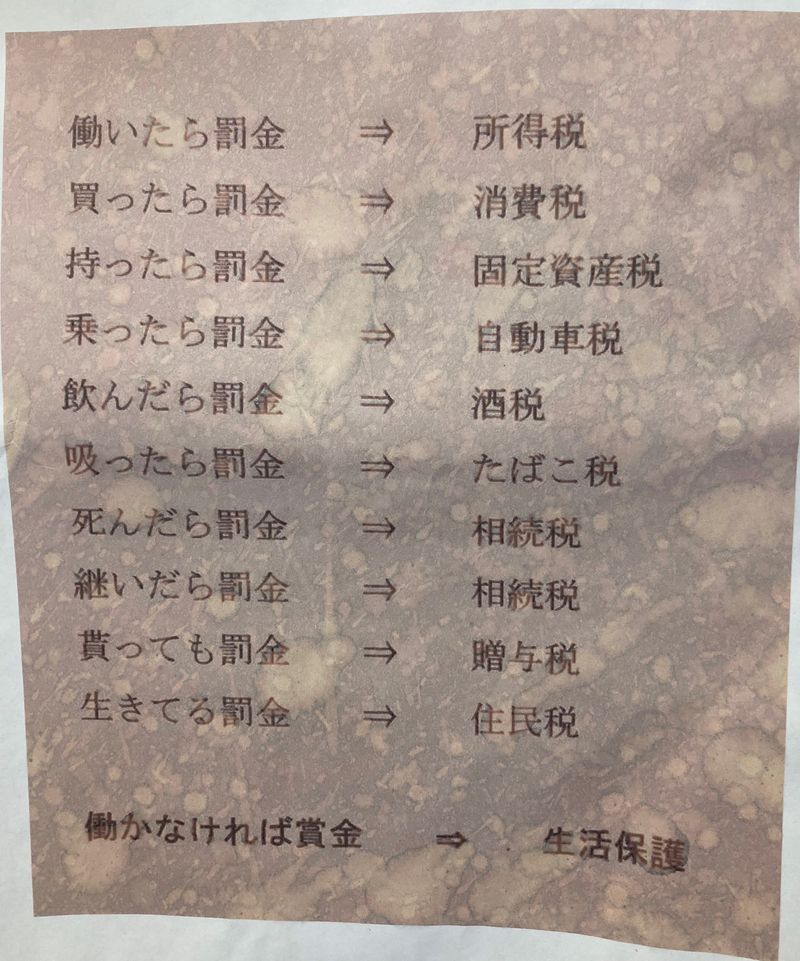 働いたら罰金 ⇒ 所得税
買ったら罰金 ⇒ 消費税
持ったら罰金 ⇒ 固定資産税
乗ったら罰金 ⇒ 自動車税
飲んだら罰金 ⇒ 酒税
吸ったら罰金 ⇒ たばこ税
死んだら罰金 ⇒ 相続税
継いだら罰金 ⇒ 相続税
貰っても罰金 ⇒ 贈与税
生きてる罰金 ⇒ 住民税
働かなければ賞金 ⇒ 生活保護